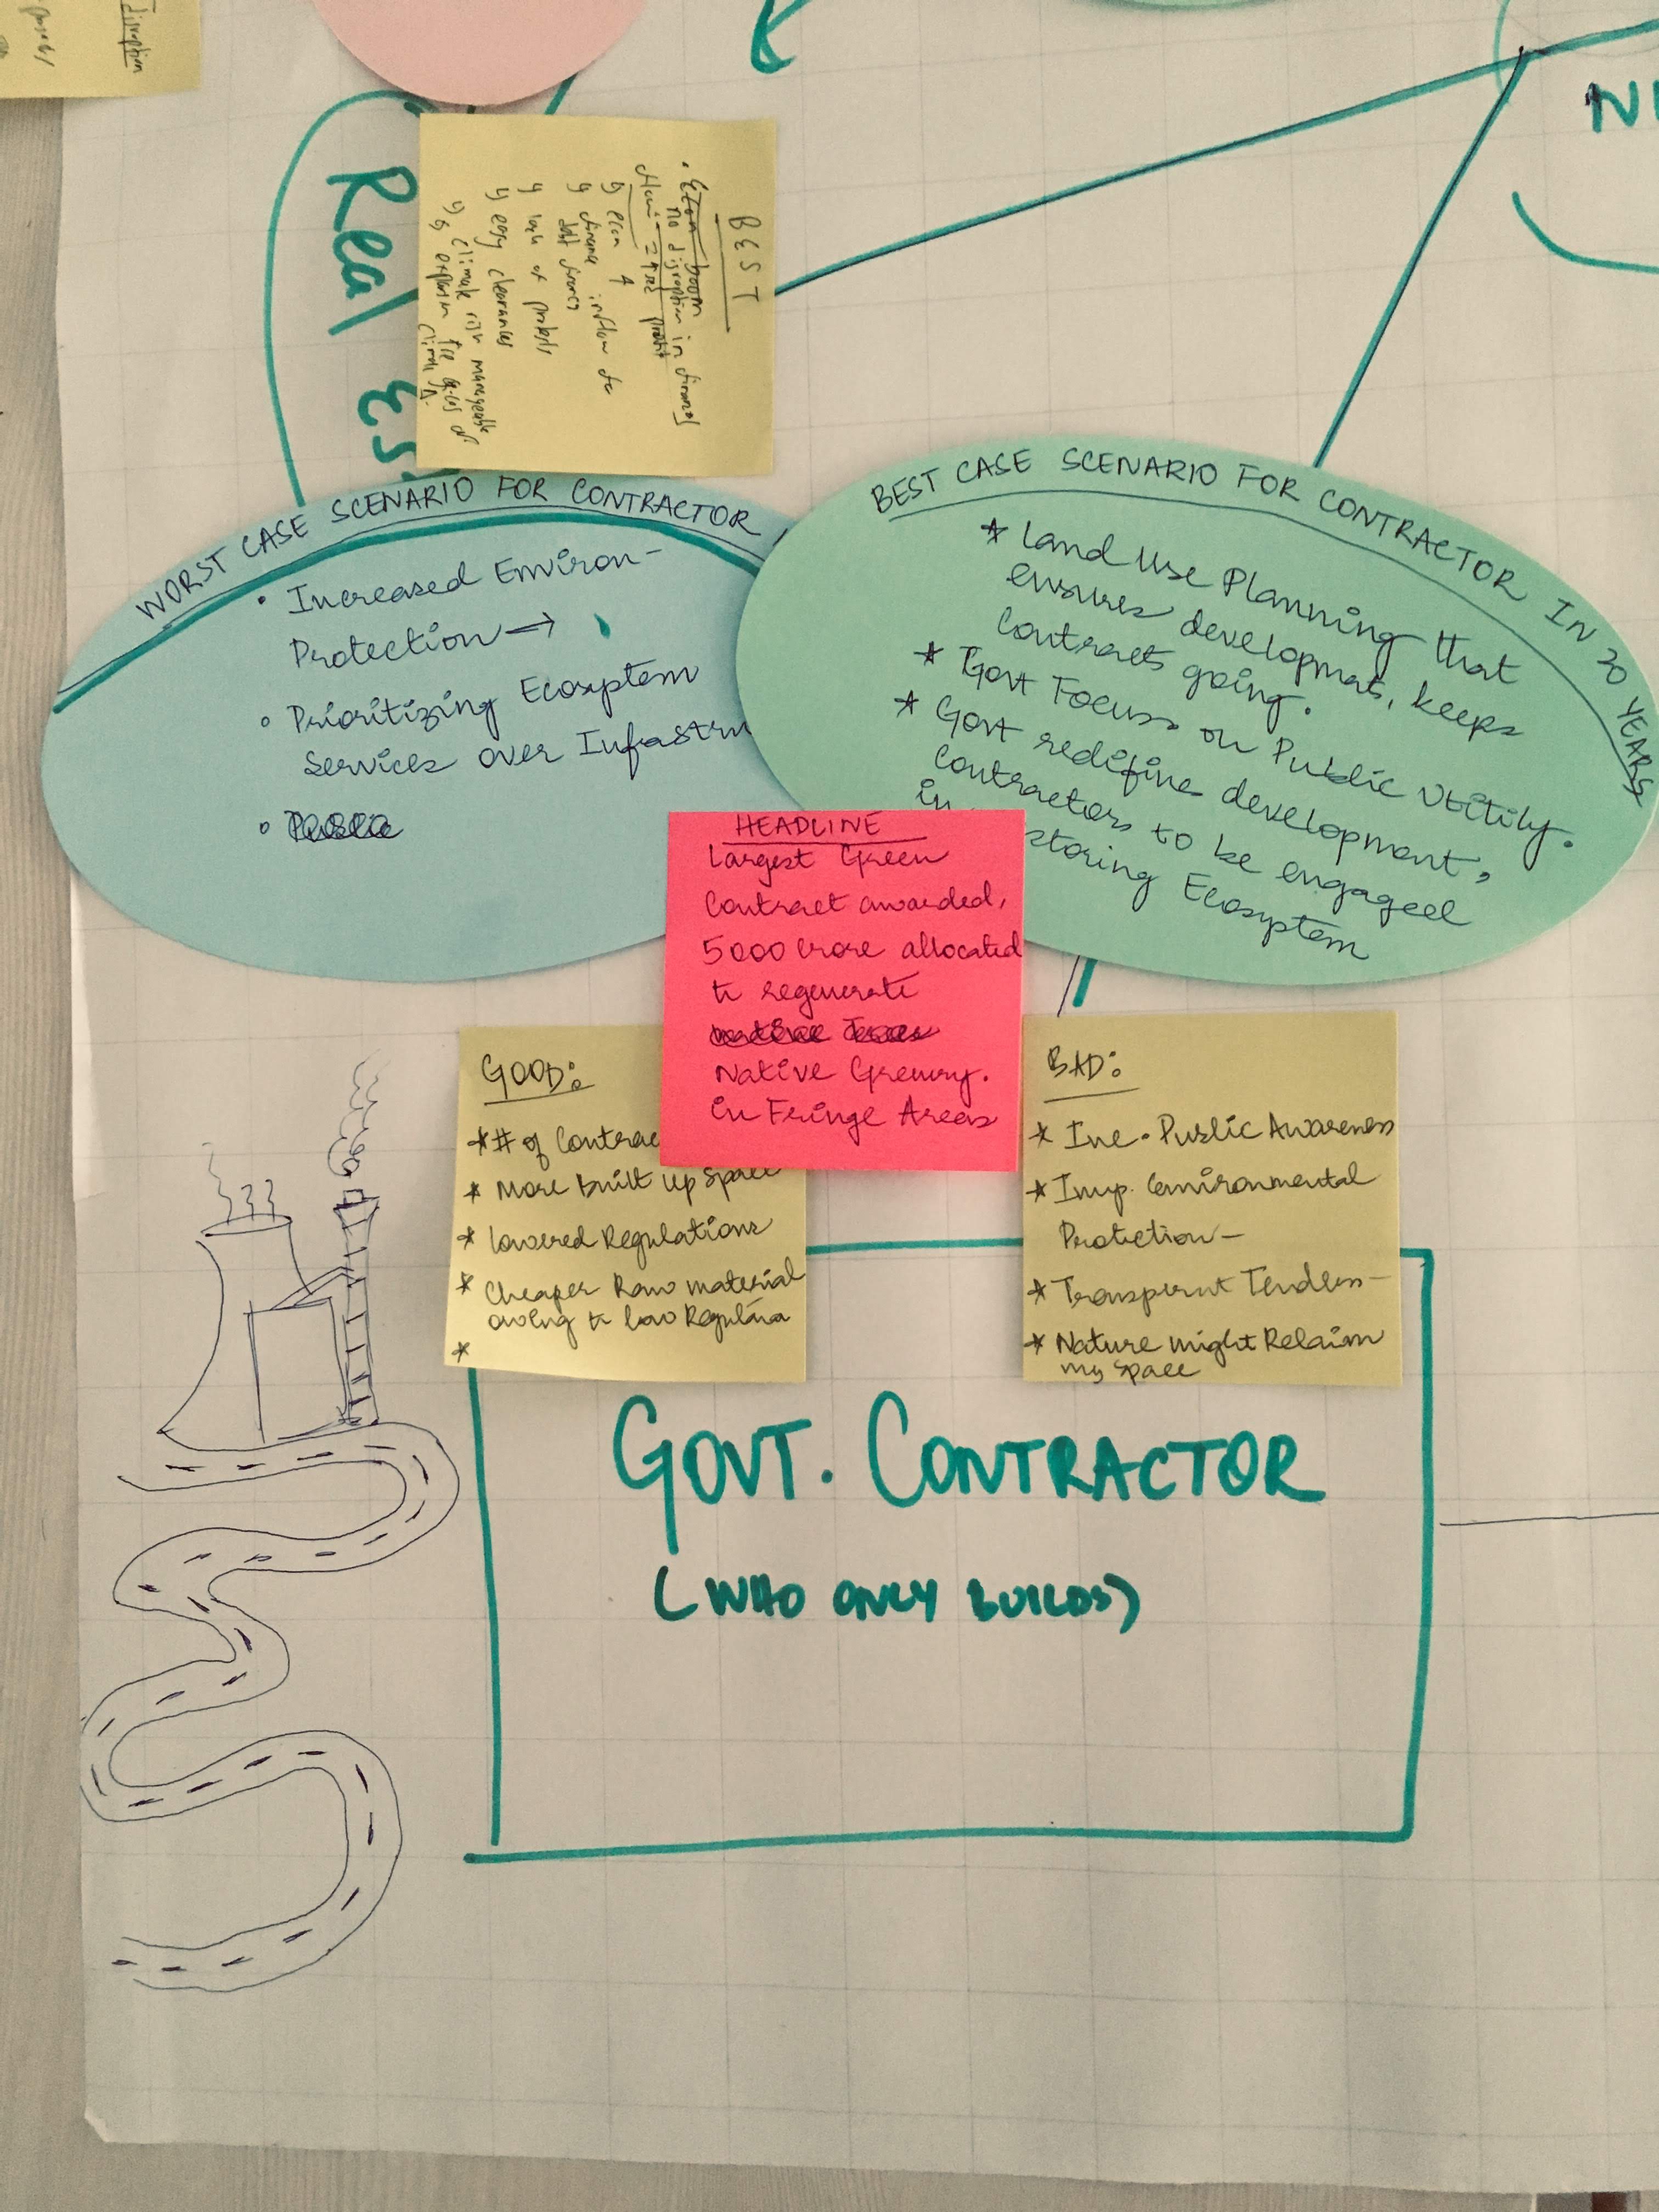 Disruption
Real Es
BEST
• Econ boom
no disruption in
econ
inflow
lack of protests
easy clearances
climate risk manageable
NI
WORST CASE SCENARIO FOR CONTRACTOR
• Increased Environ-
Protection →
• Prioritizing Ecosyptem
Services over Infrastru
•
BEST CASE SCENARIO FOR CONTRACTOR IN 20 YEARS
* Land Use Planning that
ensures developmat, keeps
Contracts going.
* Govt Focuss on Public Utitily.
* Govt redifine development,
Contractors to be engageel
in storing Ecosyptem
HEADLINE
Largest Green
Contract awarded,
5000 Crore allocated
to regenerate
Native Greenry.
in Fringe Areas
GOOD:
* # of Contrac
* More Built up Space
* Lowered Regulations
* Cheaper Raw material
owing to low Regulation
*
BAD:
* Inc. Public Awareness
* Imp. Environmental
Protection -
* Transperent Tenders -
* Nature might Relaim
my Space
GOVT. CONTRACTOR
(WHO ONLY BUILDS)